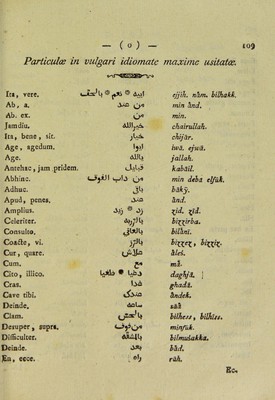 — ( o ) —
109
Particulæ in vulgari idiomate maxime usitatæ.
Ita, vere. ايه * نعم * بالحق ejjih. nàm. bilhakk.
Ab, a. من عند min ànd.
Ab. ex. من min.
Jamdiu. خير الله chairullah.
Ita, bene, sit. خيار chijâr.
Age, agedum. ايوا iwà. ejwà.
Age. يالله jallah.
Antehac, jam pridem. قبايل kabâil.
Abhinc. من دابا الفوق min debà elfúk.
Adhuc. باقي bâky.
Apud, penes. عند ànd.
Amplius. زد * زيد zid. zîd.
Celeriter. بالزربة bizzirba.
Consulto. بالعاني bilâni.
Coacte, vi. بالز bizzez, bizziz.
Cur, quare. علاش âleś.
Cum. مع mâ.
Cito, illico. دغيا * دغيا daghjà.
Cras. غدا ghadà.
Cave tibi. عندك àndek.
Deinde. ساعة saà
Clam. بالحس bilhess, bilhiss.
Desuper, supra. من فوق minfuk.
Difficulter. بالمشقة bilmuśakka.
Deinde. بعد bàd.
En, ecce. راه râh.
Ec.